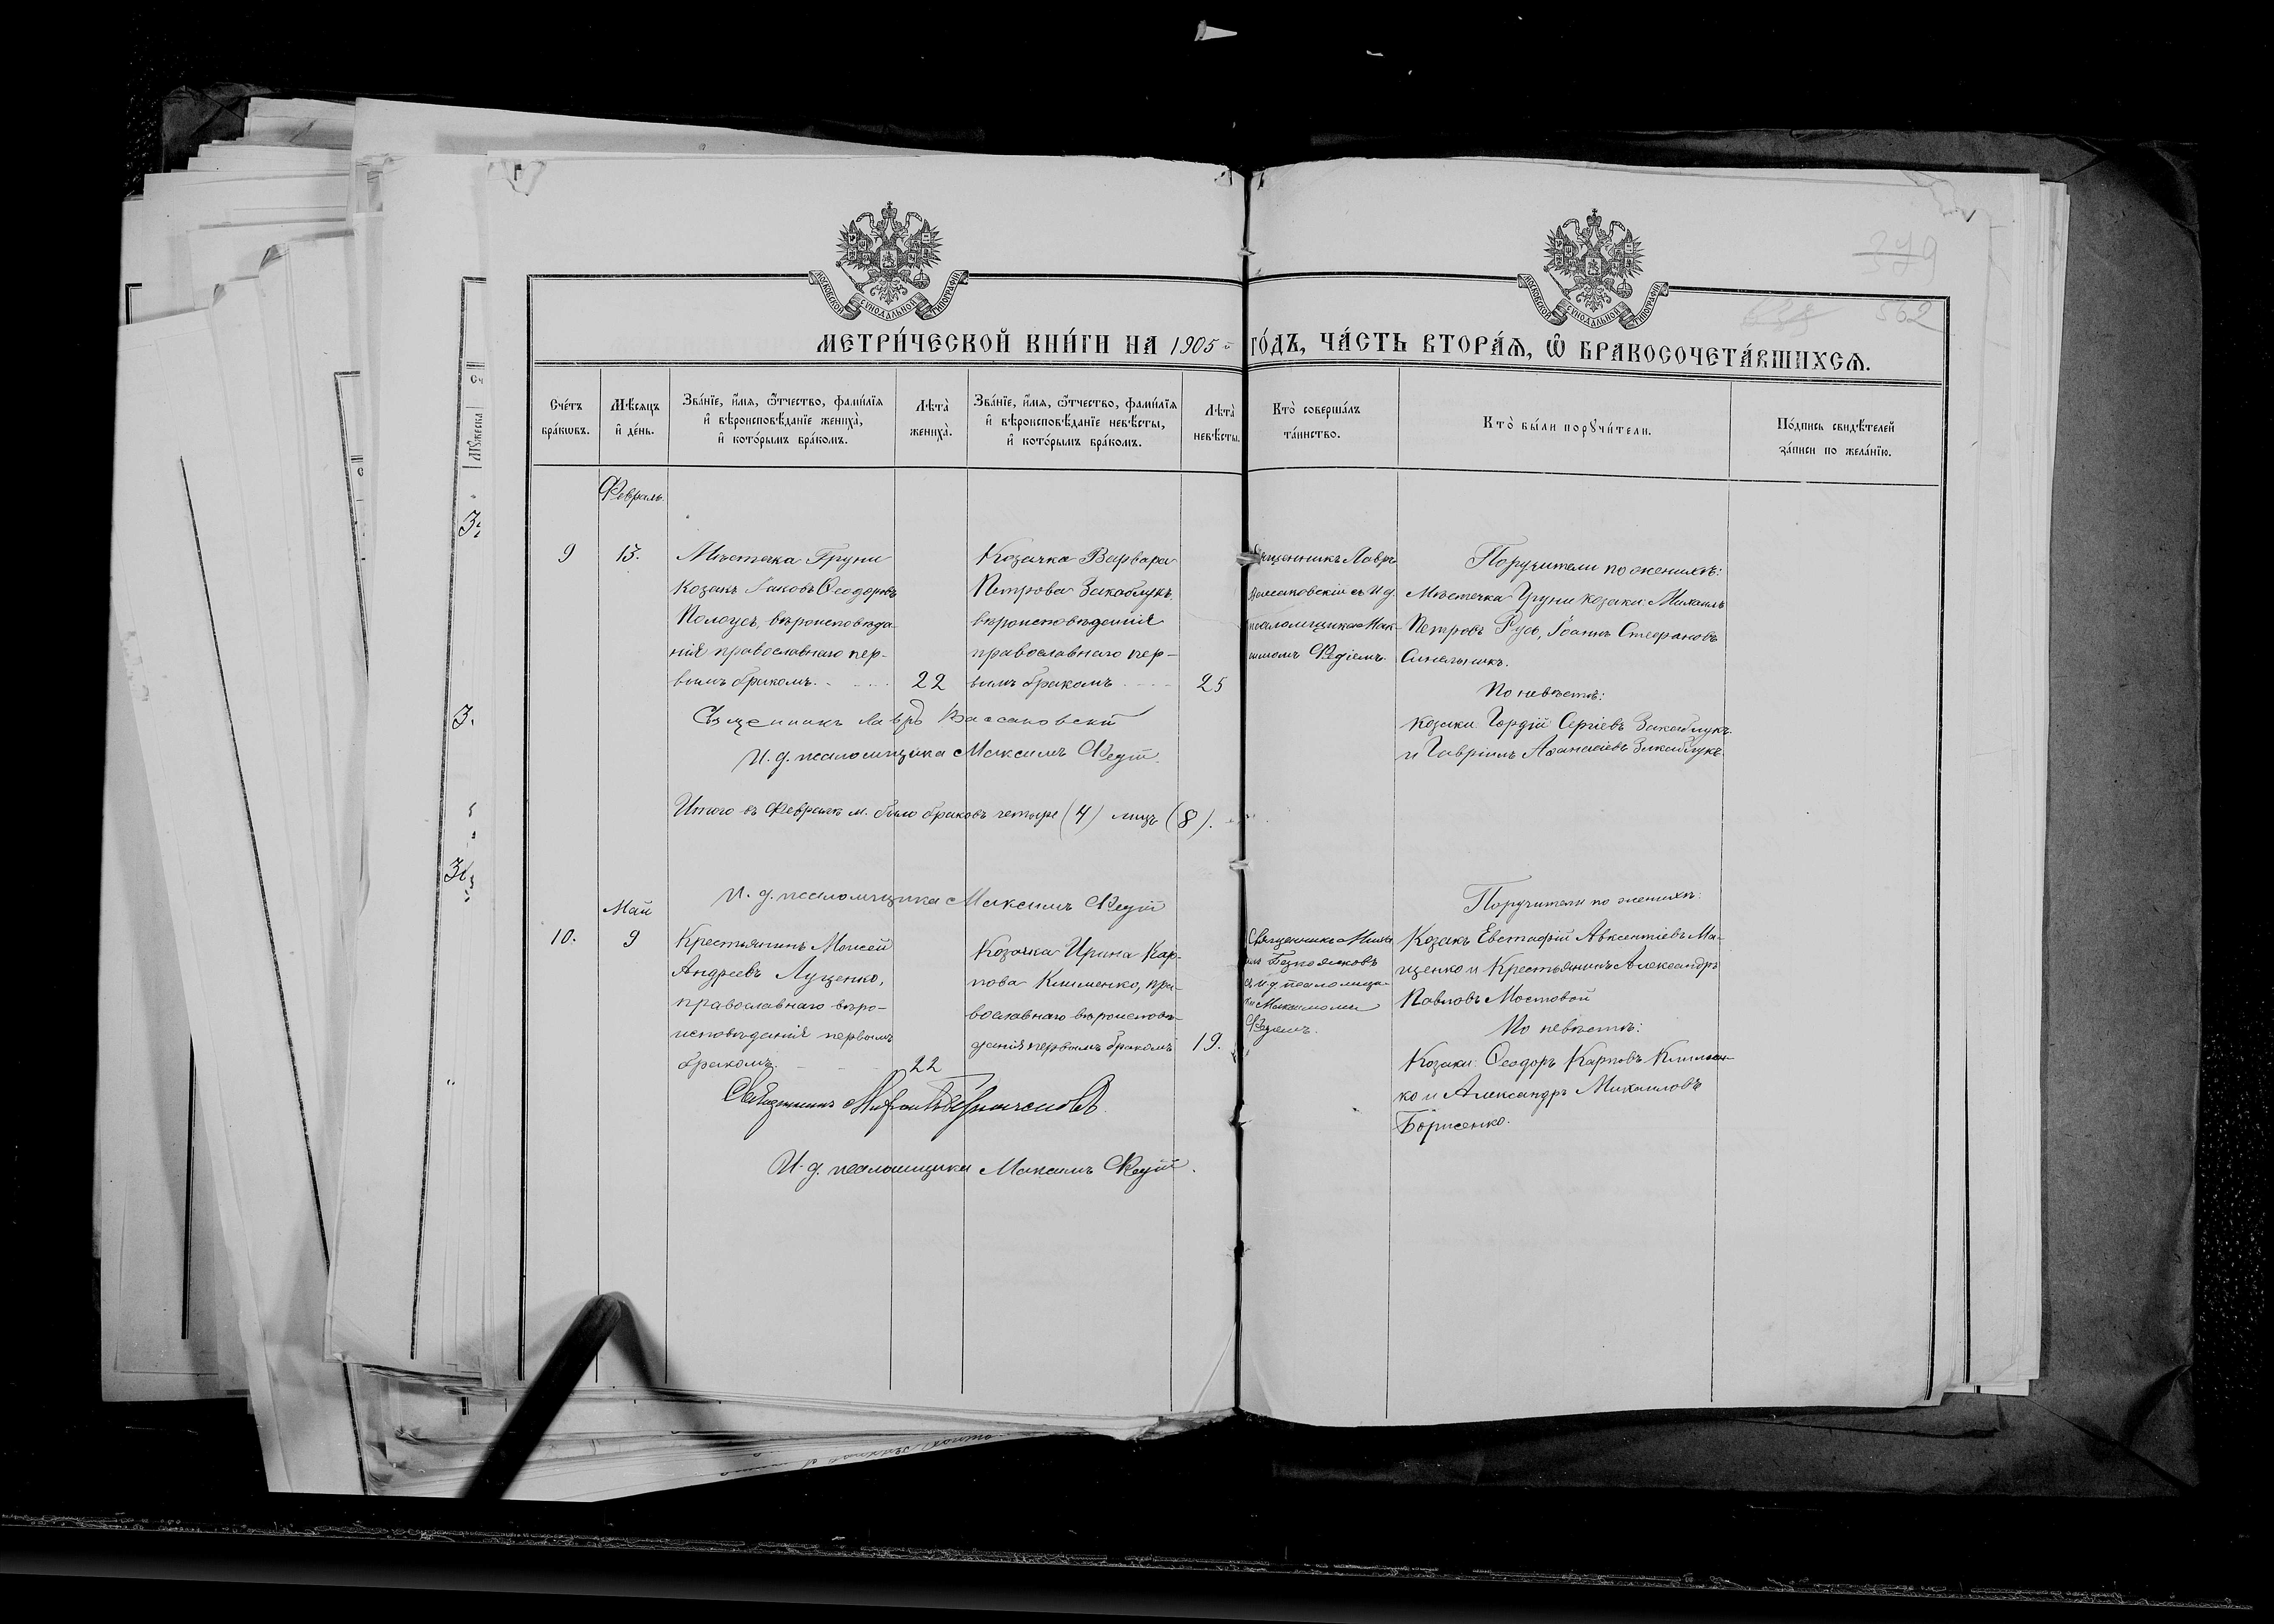 МОСКОВСКОЙ СѴНОДАЛЬНОЙ ТИПОГРАФІИ
МОСКОВСКОЙ СѴНОДАЛЬНОЙ ТИПОГРАФІИ
379
562
МЕТРИ́ЧЕСКОЙ КНИ́ГИ НА 1905 ГО́ДЪ, ЧА́СТЬ ВТОРА́Ѧ, Ѽ БРАКОСОЧЕТА́ВШИХСѦ.
Сче́тъ
бра́кωвъ.
Мѣ́сяцъ
и҆ де́нь.
Зва́нїе, и҆́мѧ, ѻ҆́тчество, фами́лїѧ
и҆ вѣроисповѣ́данїе жениха̀,
и҆ кото́рымъ бра́комъ.
Лѣта̀
жениха̀.
Зва́нїе, и҆́мѧ, ѻ҆́тчество, фами́лїѧ
и҆ вѣроисповѣ́данїе невѣ́сты,
и҆ кото́рымъ бра́комъ.
Лѣта̀
невѣ́сты.
Кто̀ соверша́лъ
та́инство.
Кто̀ бы́ли порꙋчи́тели.
По́дпись свидѣ́телей
за́писи по жела́нїю.
Февраль.
9
13.
Мѣстечка Груни
Козакъ Іаковъ Ѳеодоровъ
Полоусъ, вѣроисповѣда-
нія православнаго пер-
вымъ бракомъ.
22
Козачка Варвара
Петрова Закаблукъ
вѣроисповѣданія
православнаго пер-
вымъ бракомъ
25
Священникъ Лавръ
съ И д.
псаломщика Мак-
симомъ Федіемъ.
Поручители по женихѣ:
Мѣстечка Груни козаки: Михаилъ
Петровъ Русь, Іоаннъ Стефановъ
Синельникъ.
По невѣстѣ:
козаки: Гордій Сергіевъ Закаблукъ
и Гавріилъ Аѳанасіевъ Закаблукъ.
Священникъ Лавръ
И. д. псаломщика Максимъ Федій.
Итого въ Февралѣ м. было браковъ четыре (4) лицъ (8).
И. д. псаломщика Максимъ Федій
Май
10.
9
Крестьянинъ Моисей
Андреевъ Луценко,
православнаго вѣро-
исповѣданія первымъ
бракомъ.
22
Козачка Ирина Кар-
пова Клименко, пра-
вославнаго вѣроисповѣ-
данія первымъ бракомъ
19.
Священникъ
съ И д. псаломщи-
ка Максимомъ
Федіемъ.
Поручители по женихѣ:
Козакъ Евстафій Авксентіевъ Ма-
щенко и Крестьянинъ Александръ
Павловъ Мостовой
По невѣстѣ:
Козаки: Ѳеодоръ Карповъ Климен-
ко и Александръ Михаиловъ
Борисенко.
Священникъ
И. д. псаломщика Максимъ Федій.